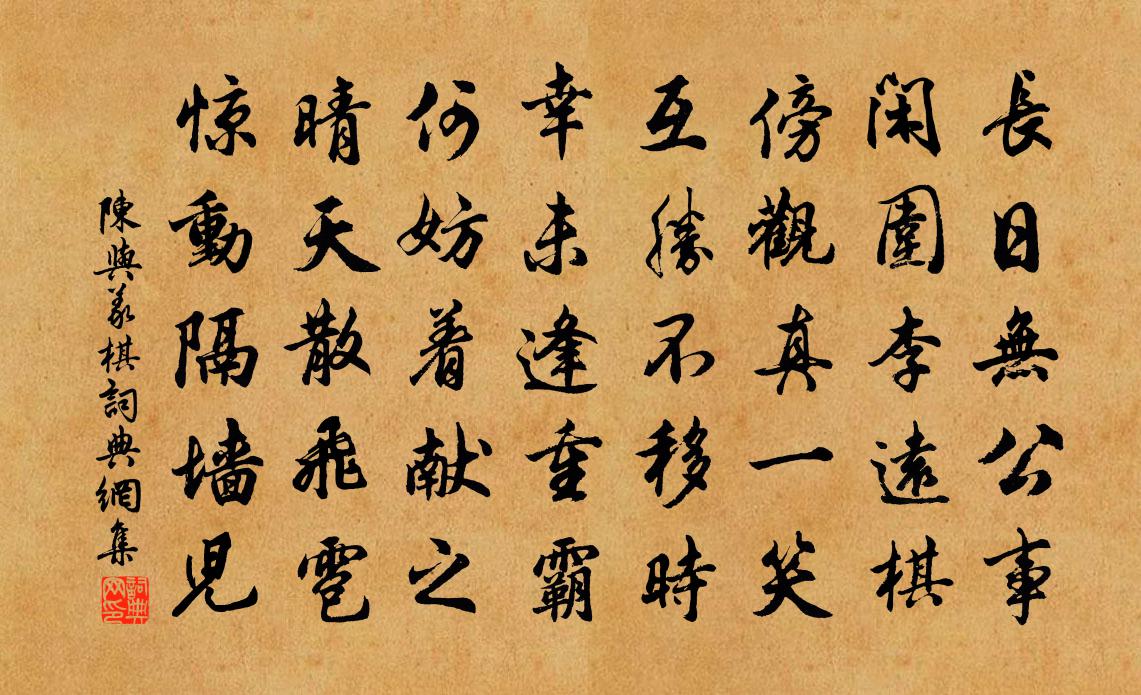 長日無公事
閑圍李遠棋
傍觀真一笑
互勝不移時
幸未逢重霸
何妨着献之
晴天散飛雹
惊動隔墙児
陳與義棋詞典網集